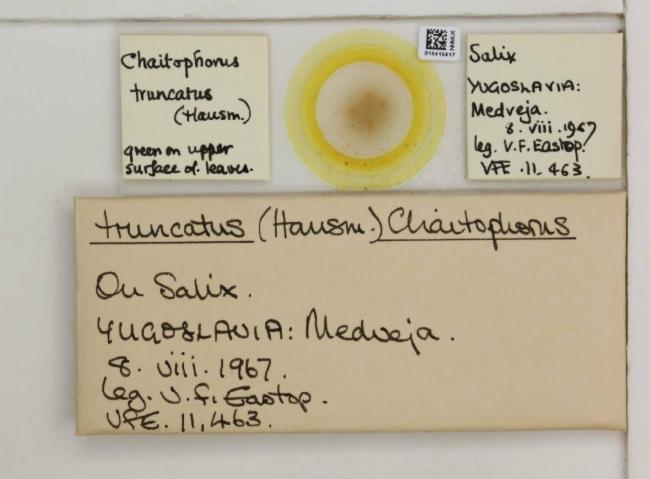 Chaitophorus
truncatus
(Hausm.)
green on upper
surface of leaves.
NHMUK
Salix
YUGOSLAVIA:
Medveja.
8. viii. 1967
leg. V.F. Eastop.
VFE. 11, 463.
truncatus (Hausm.) Chaitophorus
On Salix.
YUGOSLAVIA: Medveja.
8. viii. 1967.
leg. V.F. Eastop.
VFE. 11,463.